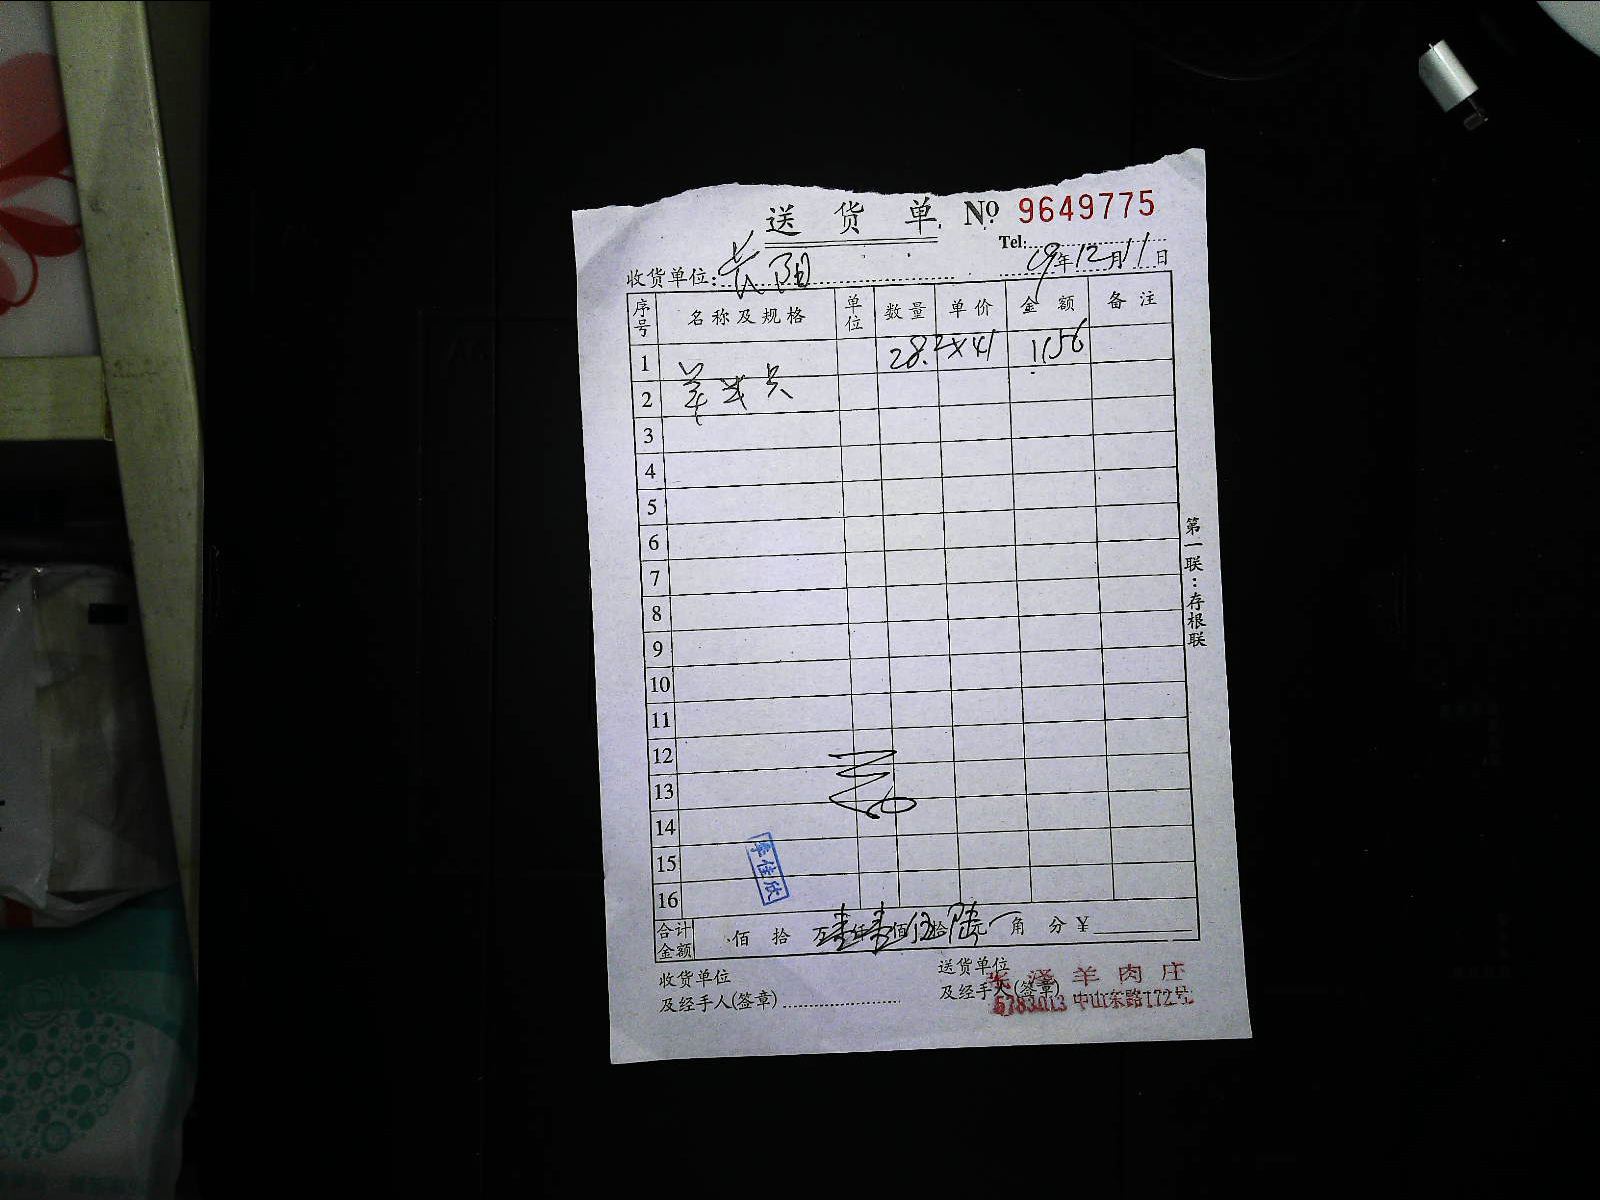 送货单 № 9649775
Tel:
收货单位: 长阳 19年12月11日
序号 名称及规格 单位 数量 单价 金额 备注
1 28.2×41 1156
2 羊
3
4
5
6
7
8
9
10
11
12
13
14
15
16
李佳欣
合计金额 佰 拾 万壹仟壹佰伍拾陆元 角 分 ¥
收货单位 送货单位
及经手人(签章) 及经手人(签章)
羊肉庄
5783013 中山东路172号
第一联:存根联